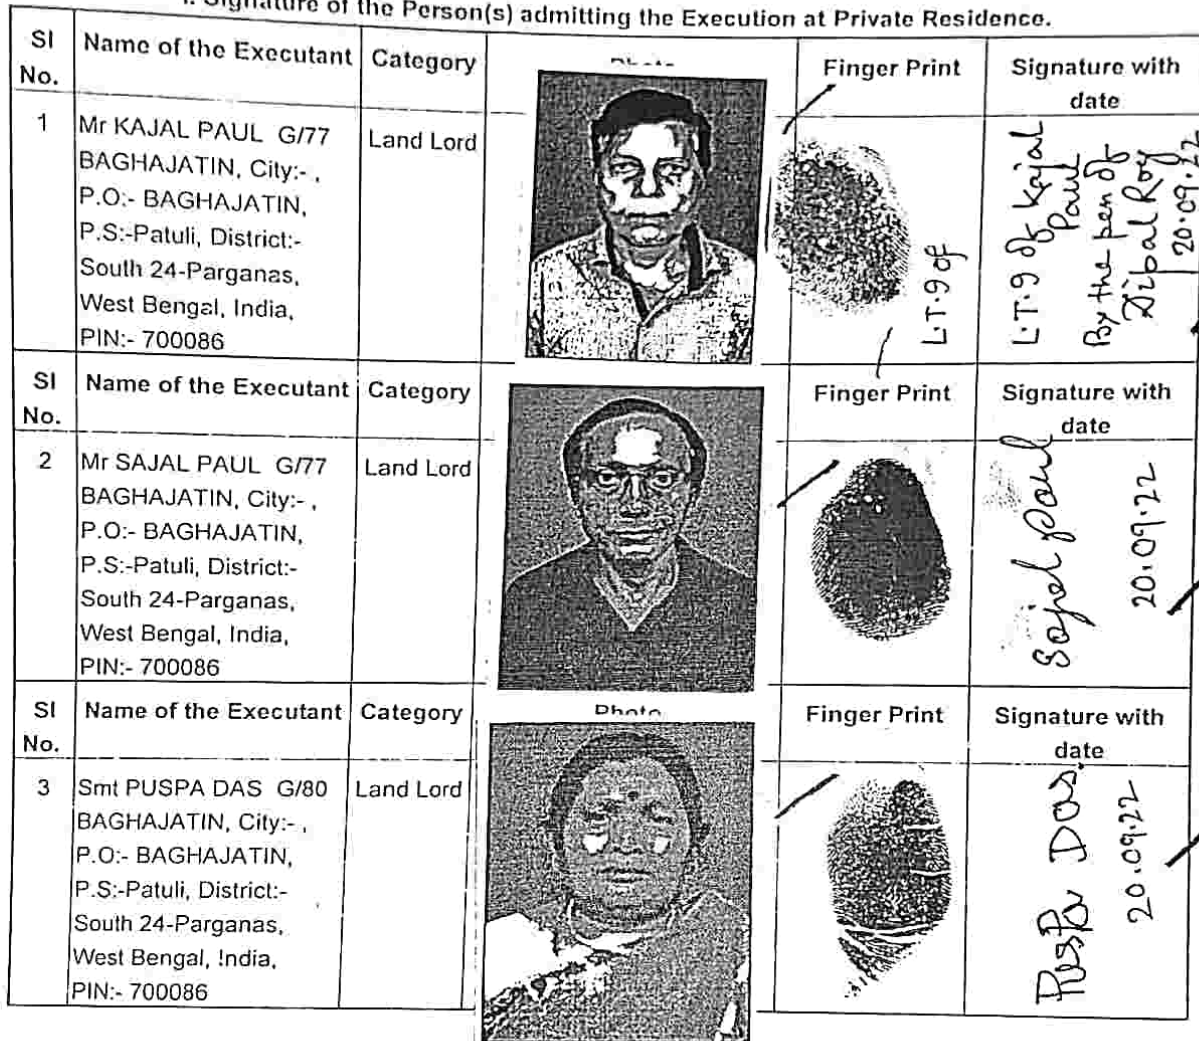 I. Signature of the Person(s) admitting the Execution at Private Residence.
Sl No. Name of the Executant Category Finger Print Signature with date
1 Mr KAJAL PAUL G/77 Land Lord
BAGHAJATIN, City:- ,
P.O:- BAGHAJATIN,
P.S:-Patuli, District:-
South 24-Parganas,
West Bengal, India,
PIN:- 700086
L.T.9 of
L.T.9 of Kajal
Paul
By the pen of
Dibal Roy
20.09.22
Sl No. Name of the Executant Category Finger Print Signature with date
2 Mr SAJAL PAUL G/77 Land Lord
BAGHAJATIN, City:- ,
P.O:- BAGHAJATIN,
P.S:-Patuli, District:-
South 24-Parganas,
West Bengal, India,
PIN:- 700086
Sajal Paul
20.09.22
Sl No. Name of the Executant Category Photo Finger Print Signature with date
3 Smt PUSPA DAS G/80 Land Lord
BAGHAJATIN, City:- ,
P.O:- BAGHAJATIN,
P.S:-Patuli, District:-
South 24-Parganas,
West Bengal, India,
PIN:- 700086
Puspa Das.
20.09.22